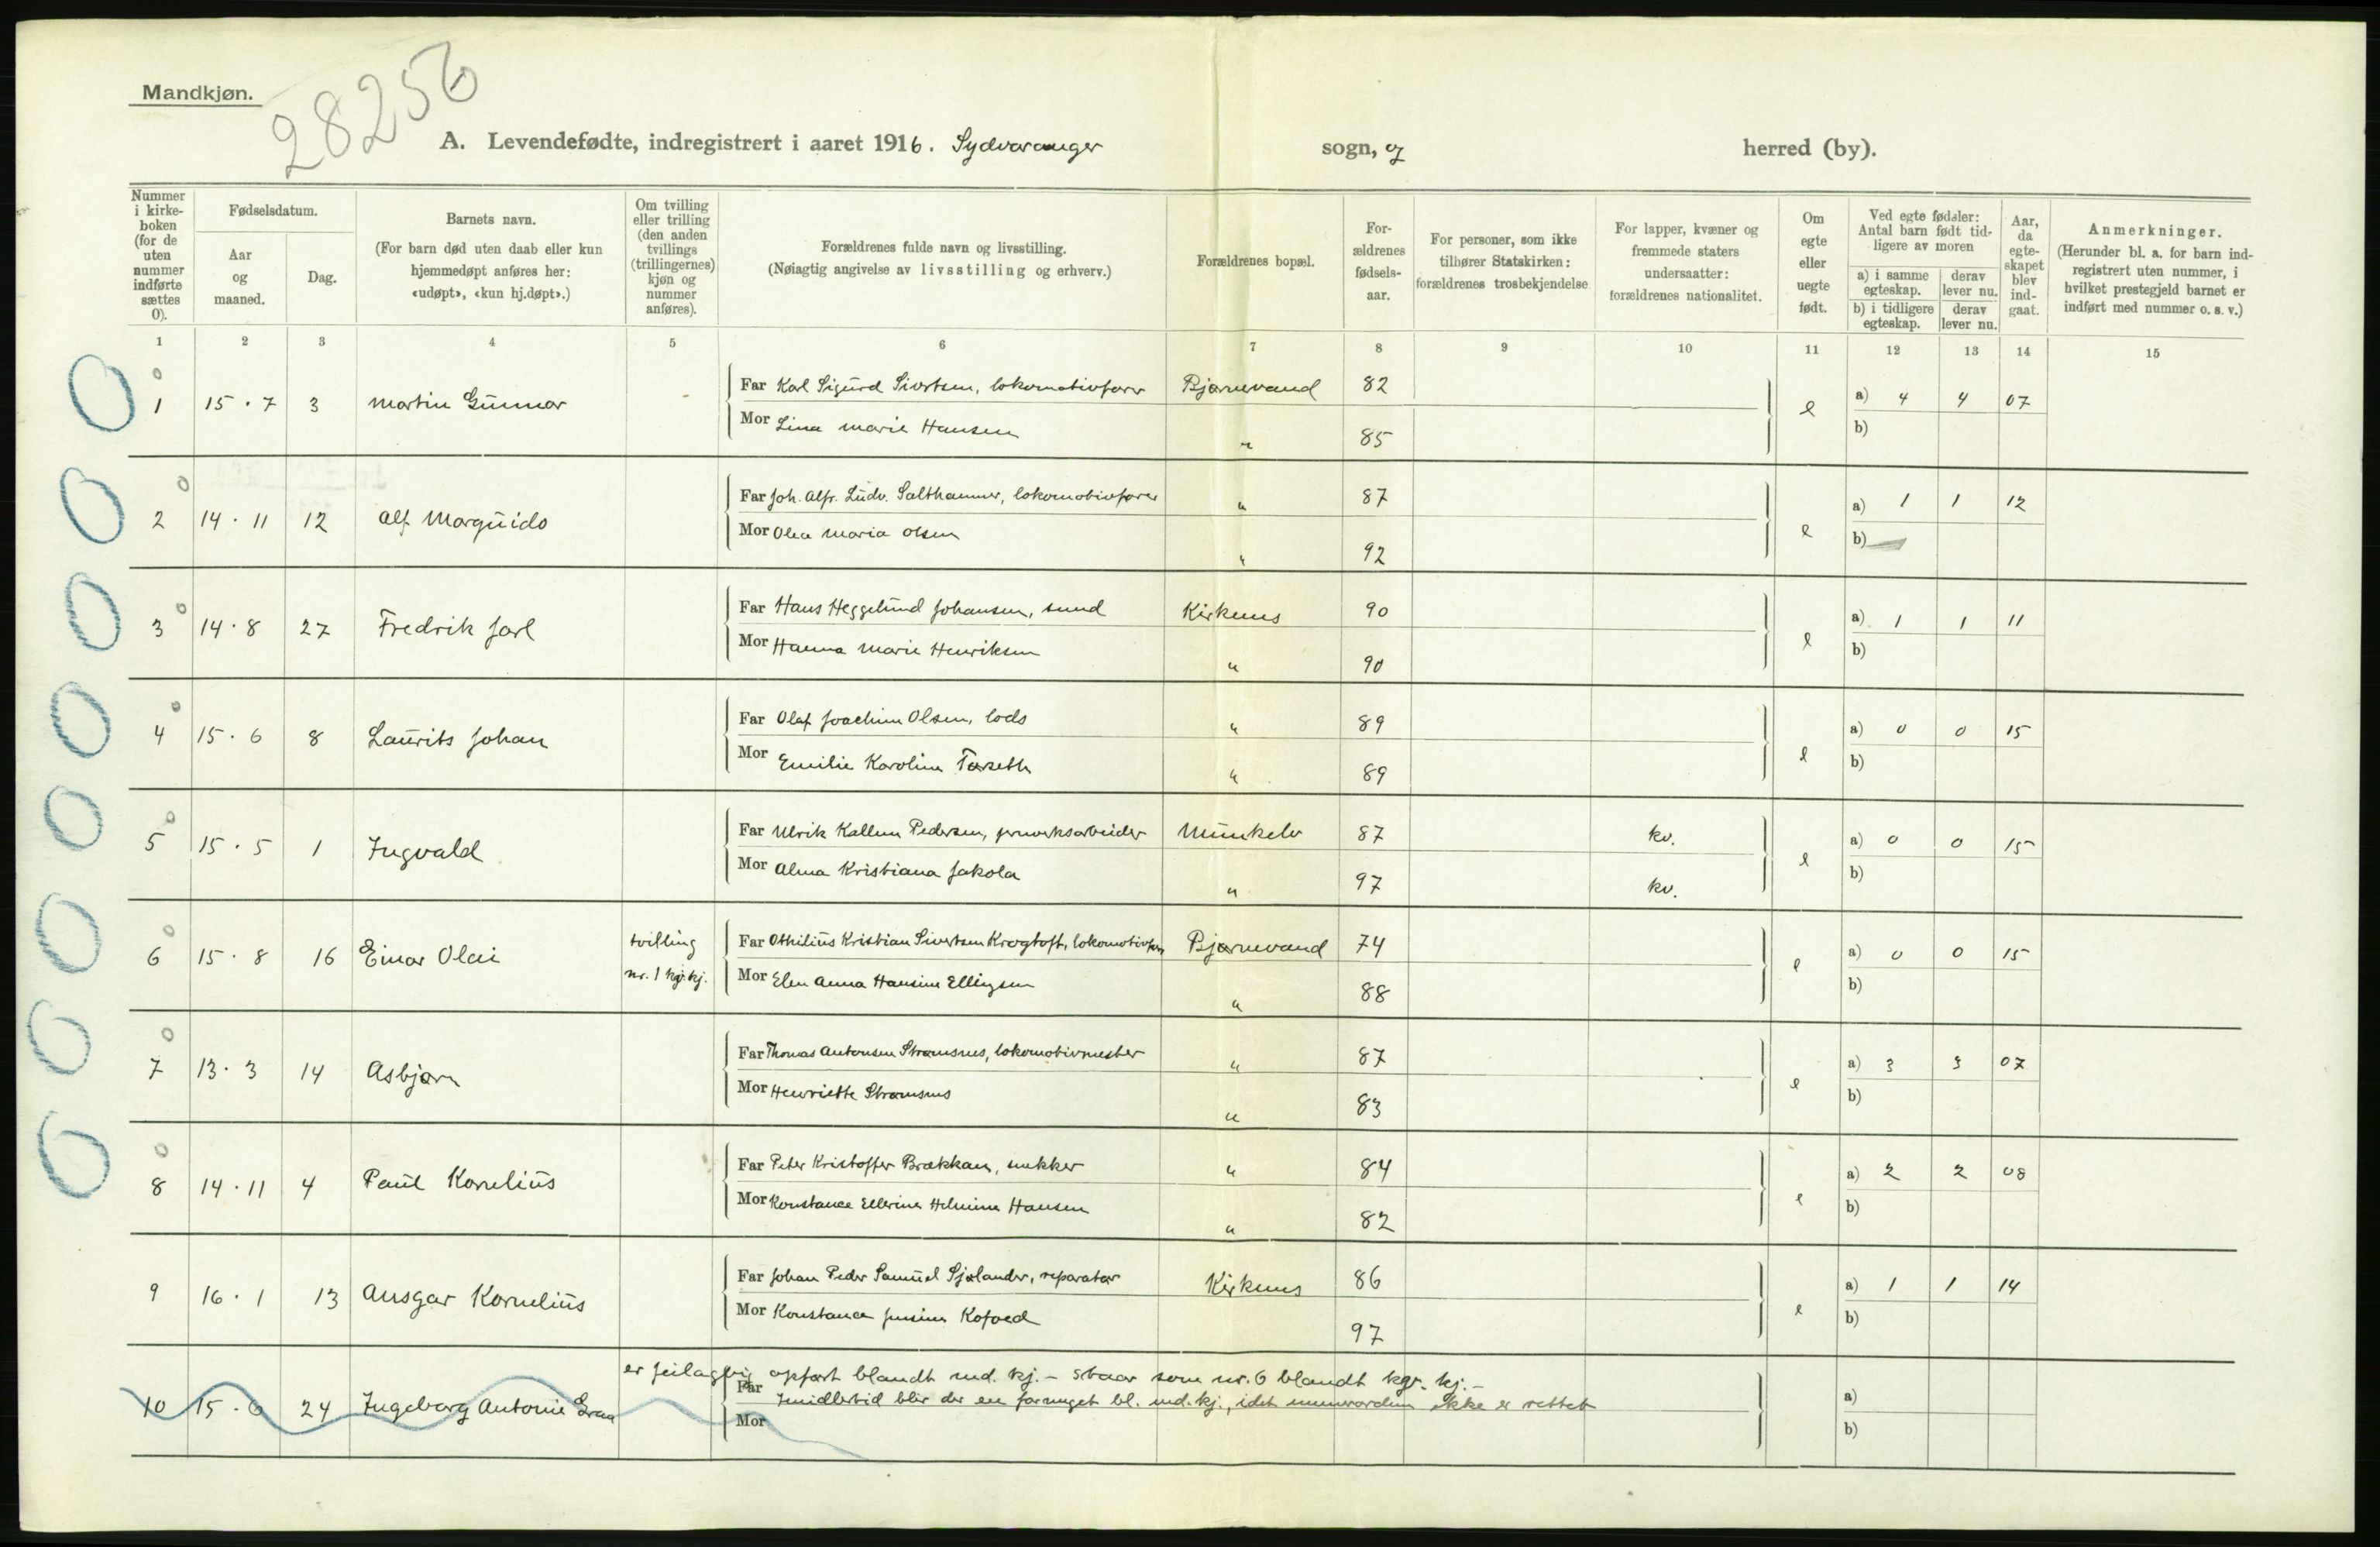 Mandkjøn.
28256
A. Levendefødte, indregistrert i aaret 1916. Sydvaranger sogn, og herred (by).
Nummer i kirkeboken (for de uten nummer indførte sættes 0).
Fødselsdatum.
Aar og maaned.
Dag.
Barnets navn.
(For barn død uten daab eller kun hjemmedøpt anføres her: «udøpt», «kun hj.døpt».)
Om tvilling eller trilling (den anden tvillings (trillingernes) kjøn og nummer anføres).
Forældrenes fulde navn og livsstilling.
(Nøiagtig angivelse av livsstilling og erhverv.)
Forældrenes bopæl.
Forældrenes fødselsaar.
For personer, som ikke tilhører Statskirken: forældrenes trosbekjendelse
For lapper, kvæner og fremmede staters undersaatter: forældrenes nationalitet.
Om egte eller uegte født.
Ved egte fødsler: Antal barn født tidligere av moren
a) i samme egteskap. derav lever nu.
b) i tidligere egteskap. derav lever nu.
Aar, da egteskapet blev indgaat.
Anmerkninger.
(Herunder bl. a. for barn indregistrert uten nummer, i hvilket prestegjeld barnet er indført med nummer o. s. v.)
1 2 3 4 5 6 7 8 9 10 11 12 13 14 15
0 0 1 15 . 7 3 Martin Gunnar - Far Karl Sigurd Sivertsen, lokomotivfører Bjørnevand 82 e a) 4 4 07
Mor Lina Marie Hansen " 85 b)
0 0 2 14 . 11 12 Alf Margüido Far Joh. Alfr. Ludv. Salthammer, lokomotivfører " 87 e a) 1 1 12
Mor Olea Maria Olsen " 92 b)
0 0 3 14 . 8 27 Fredrik Jarl Far Hans Heggelund Johansen, smed Kirkenes 90 e a) 1 1 11
Mor Hanna Marie Henriksen " 90 b)
0 0 4 15 . 6 8 Laurits Johan Far Olaf Joachim Olsen, lods " 89 e a) 0 0 15
Mor Emilie Karoline Torseth " 89 b)
0 0 5 15 . 5 1 Ingvald Far Ulrik Kallum Pedersen, jernverksarbeider Munkelv 87 kv. e a) 0 0 15
Mor Alma Kristiana Jakola " 97 kv. b)
0 0 6 15 . 8 16 Einar Olai tvilling nr. 1 kv.kj. Far Othilius Kristian Sivertsen Krogtoft, lokomotivfører Bjørnevand 74 e a) 0 0 15
Mor Elen Anna Hansine Ellingsen " 88 b)
0 0 7 13 . 3 14 Asbjørn Far Thomas Antonsen Strømsnes, lokomotivmester " 87 e a) 3 3 07
Mor Henriette Strømsnes " 83 b)
0 0 8 14 . 11 4 Paul Kornelius Far Peter Kristoffer Brækkan, snekker " 84 e a) 2 2 08
Mor Konstance Ellerine Helmine Hansen " 82 b)
9 16 . 1 13 Ansgar Kornelius Far Johan Peder Samuel Sjølander, reparatør Kirkenes 86 e a) 1 1 14
Mor Konstance Jensine Kofoed 97 b)
er feilagtig opført blandt md. kj. – staar som nr. 6 blandt kv. kj. –
10 15 . 6 24 Ingeborg Antonie Far Imidlertid blir der en formeget bl. md. kj., idet nummerorden ikke er rettet a)
Mor b)